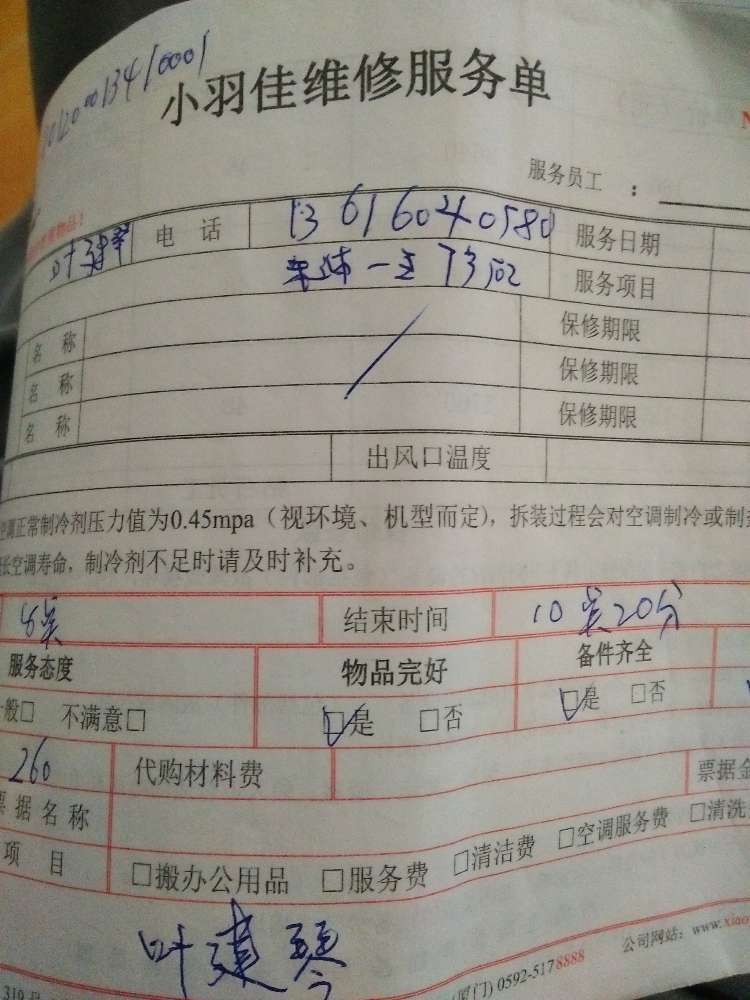 小羽佳维修服务单
服务员工 ：
叶建琴 电 话 13616040580 服务日期
服务项目
名 称 保修期限
名 称 保修期限
名 称 保修期限
出风口温度
空调正常制冷剂压力值为0.45mpa（视环境、机型而定），拆装过程会对空调制冷或制
长空调寿命，制冷剂不足时请及时补充。
结束时间 10点20分
服务态度 物品完好 备件齐全
般□ 不满意□ □是 □否 □是 □否
260 代购材料费 票据金
票据名称
项 目 □搬办公用品 □服务费 □清洁费 □空调服务费 □清洗
叶建琴
319号 厦门) 0592-5178888 公司网站：www.xiao